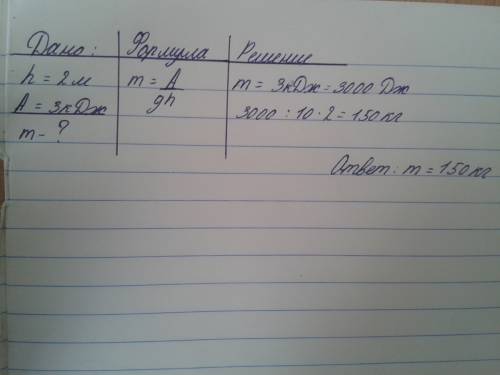 Дано: Формула Решение
h = 2м m = A/gh m = 3кДж = 3000 Дж
A = 3кДж 3000 : 10 · 2 = 150 кг
m - ?
Ответ: m = 150 кг